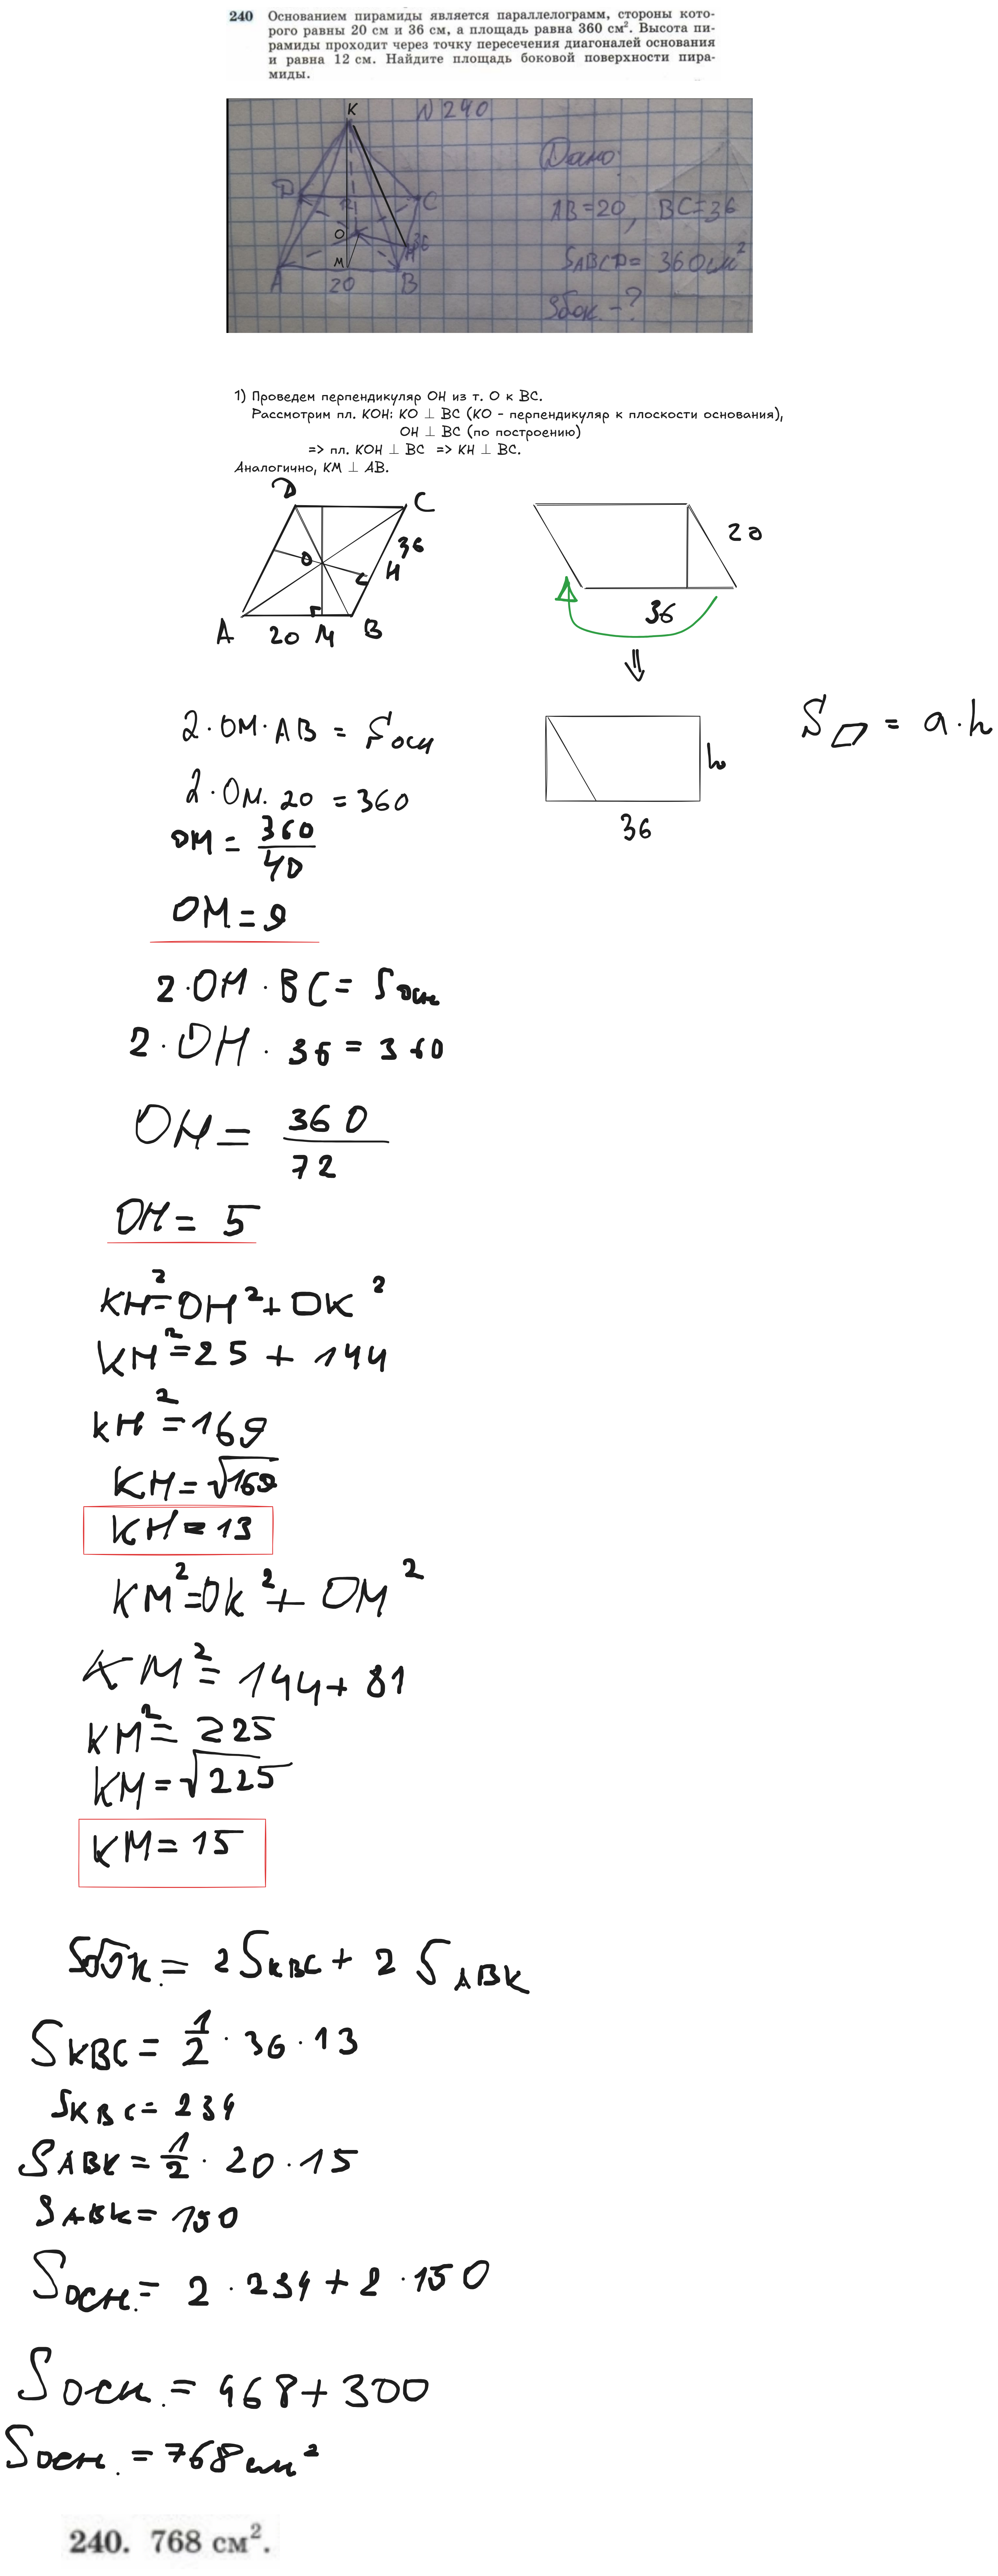 240 Основанием пирамиды является параллелограмм, стороны кото-
рого равны 20 см и 36 см, а площадь равна 360 см². Высота пи-
рамиды проходит через точку пересечения диагоналей основания
и равна 12 см. Найдите площадь боковой поверхности пира-
миды.
K
N 240
Дано:
D
C
AB=20, BC=36
O
H
36
SABCD= 360см²
M
A
20
B
Sбок. -?
1) Проведем перпендикуляр OH из т. O к BC.
Рассмотрим пл. KOH: KO ⊥ BC (KO - перпендикуляр к плоскости основания),
OH ⊥ BC (по построению)
=> пл. KOH ⊥ BC => KH ⊥ BC.
Аналогично, KM ⊥ AB.
D
C
36
O
H
A
20
M
B
20
36
⇓
2·OM·AB = Sосн
S▱ = a·h
h
2·OM·20 = 360
36
OM = 360/40
OM = 9
2·OH·BC = Sосн
2·OH·36 = 360
OH = 360/72
OH = 5
KH²=OH²+OK²
KH²=25+144
KH²=169
KH=√169
KH=13
KM²=OK²+OM²
KM²=144+81
KM²=225
KM=√225
KM=15
Sбок.= 2SKBC + 2SABK
SKBC = 1/2·36·13
SKBC = 234
SABK = 1/2·20·15
SABK = 150
Sосн.= 2·234+2·150
Sосн.= 468+300
Sосн.= 768см²
240. 768 см².